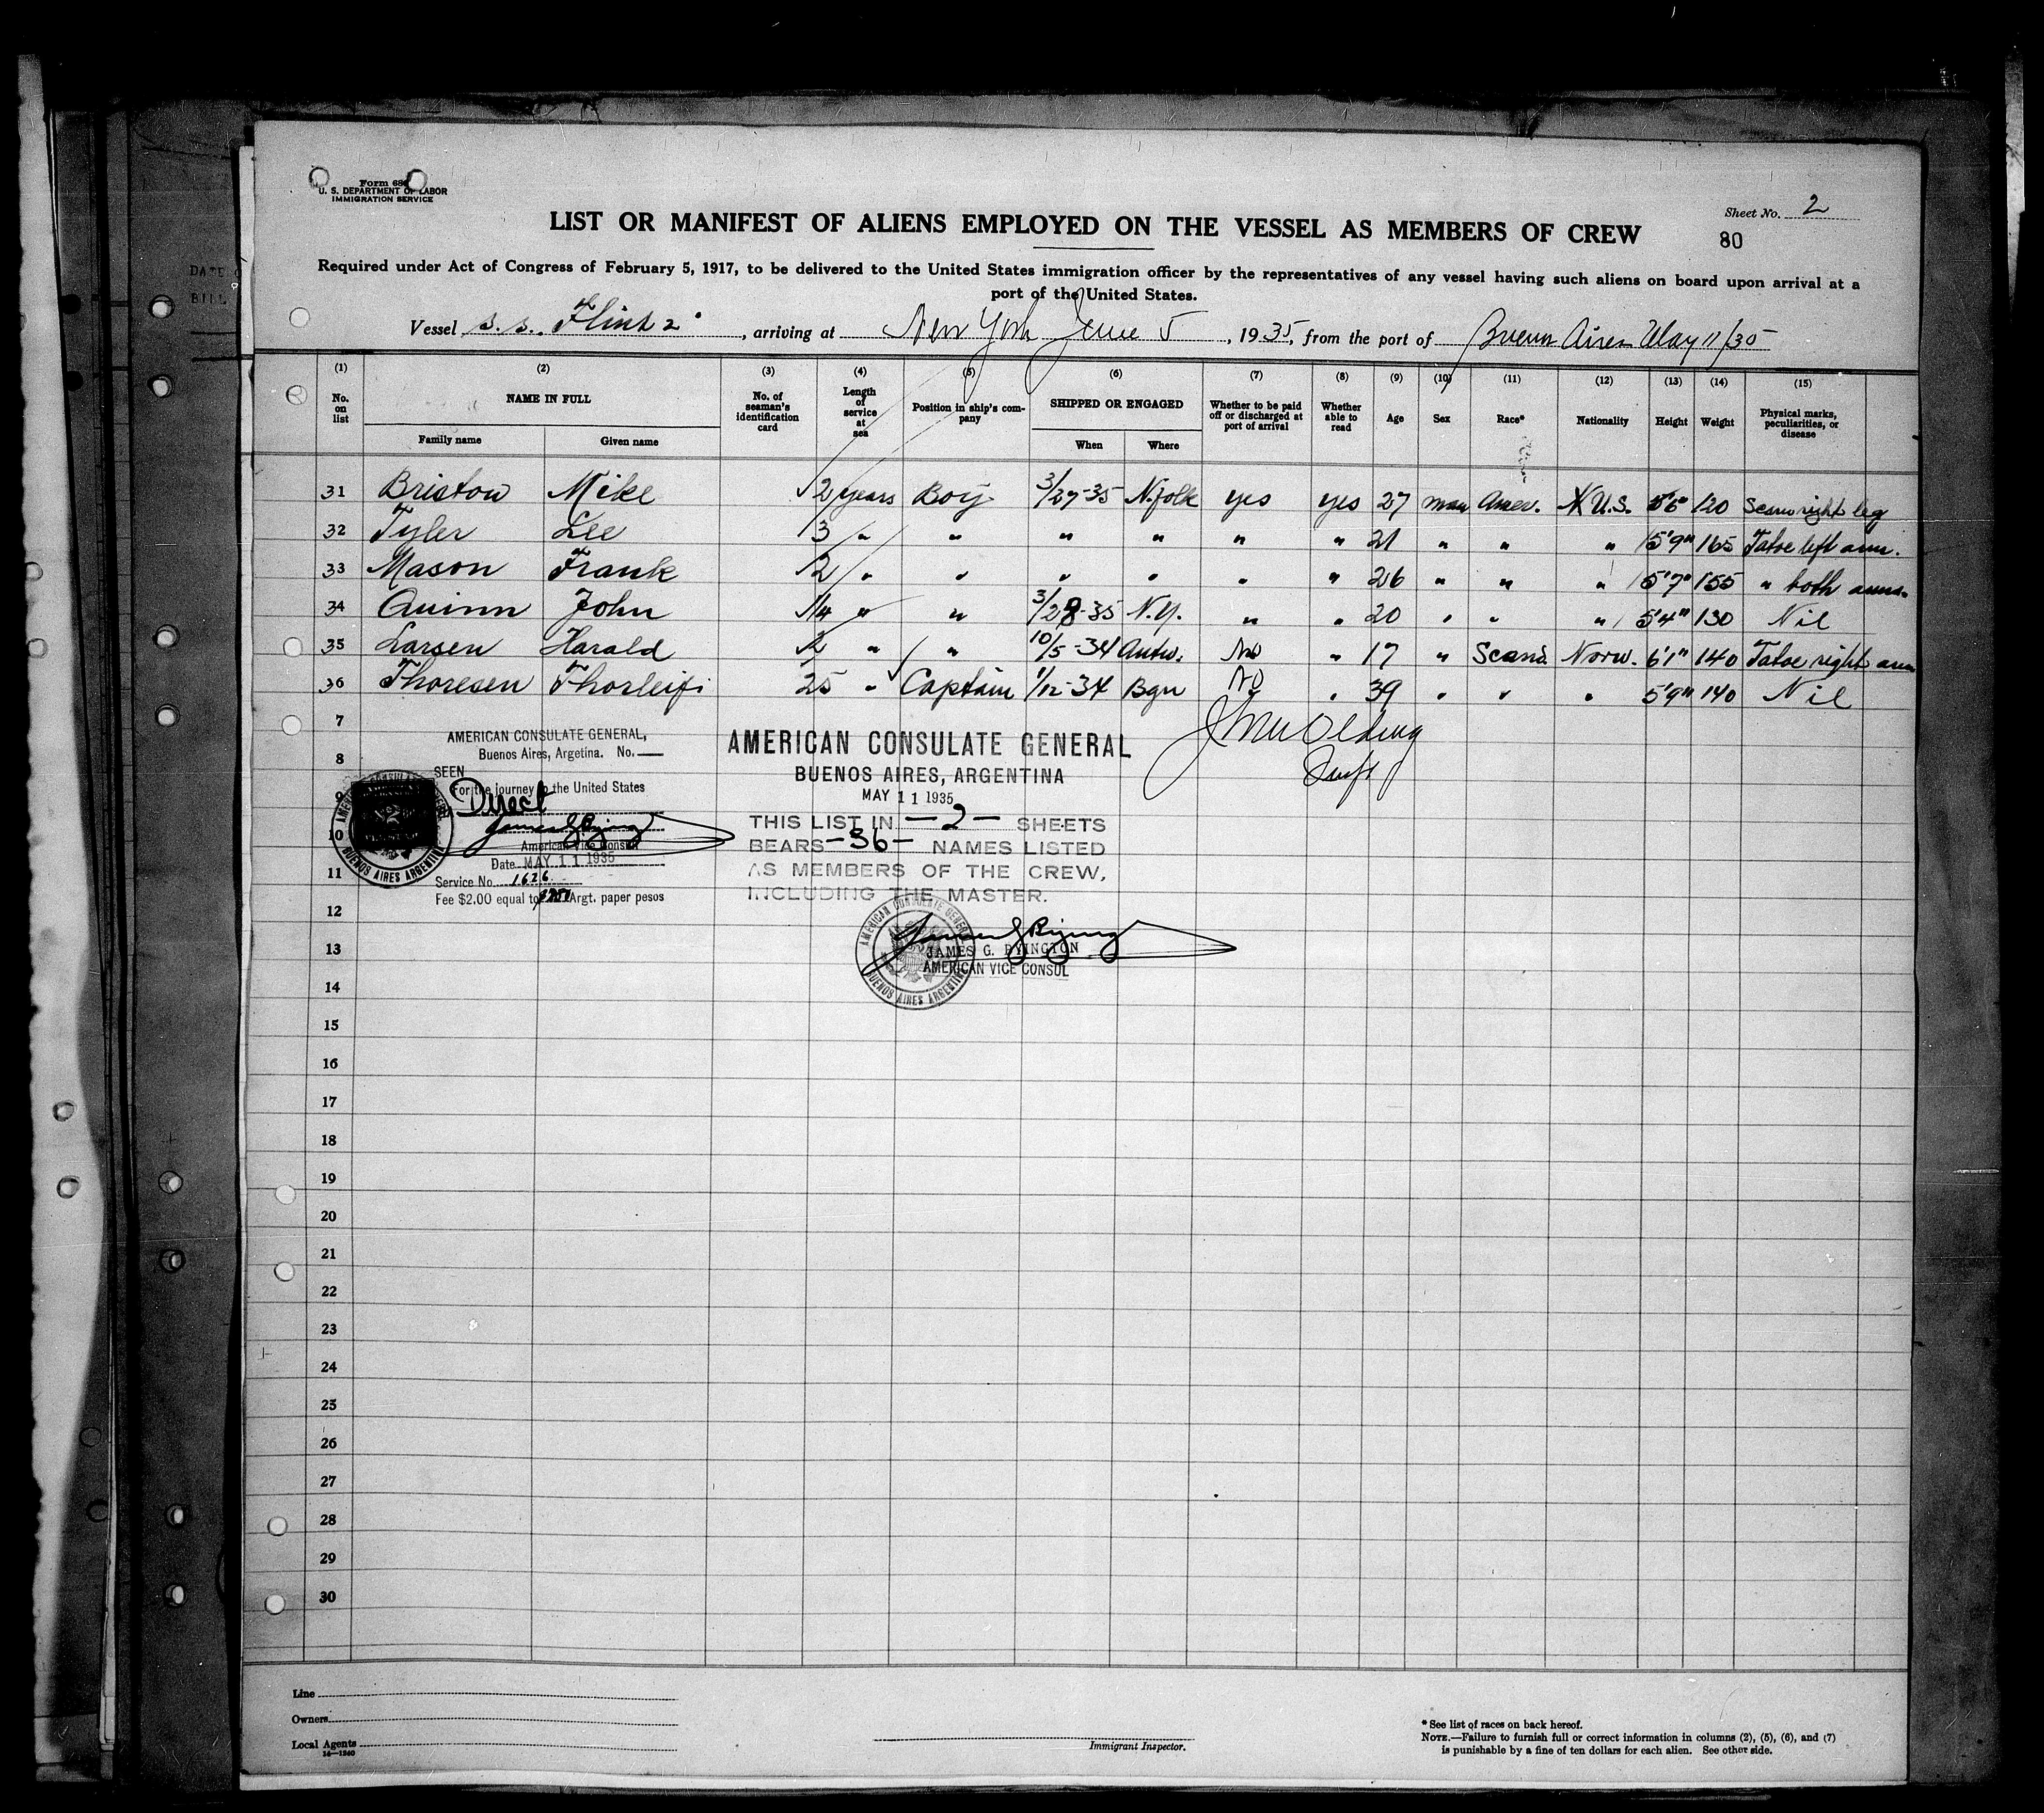 Form 680
U. S. DEPARTMENT OF LABOR
IMMIGRATION SERVICE
Sheet No. 2
80
LIST OR MANIFEST OF ALIENS EMPLOYED ON THE VESSEL AS MEMBERS OF CREW
Required under Act of Congress of February 5, 1917, to be delivered to the United States immigration officer by the representatives of any vessel having such aliens on board upon arrival at a
port of the United States.
Vessel s.s. Flint 2, arriving at New York June 5, 1935, from the port of Buenos Aires May 11/35
(1) (2) (3) (4) (5) (6) (7) (8) (9) (10) (11) (12) (13) (14) (15)
No. on list
NAME IN FULL
Family name
Given name
No. of seaman's identification card
Length of service at sea
Position in ship's company
SHIPPED OR ENGAGED
When
Where
Whether to be paid off or discharged at port of arrival
Whether able to read
Age
Sex
Race*
Nationality
Height
Weight
Physical marks, peculiarities, or disease
31 Bristow Mike 2 years Boy 3/27-35 N.folk yes yes 27 man Amer. U.S. 5'6" 120 Scar right leg
32 Tyler Lee 3 " " " " " " 21 " " " 5'9" 165 Tatoe left arm.
33 Mason Frank 2 " " " " " " 26 " " " 5'7" 155 " both arms.
34 Quinn John 1/4 " " 3/28-35 N.Y. " " 20 " " " 5'4" 130 Nil
35 Larsen Harald 2 " " 10/5-34 Antw. No " 17 " Scand. Norw. 6'1" 140 Tatoe right arm
36 Thoresen Thorleif 25 " Captain 1/12-34 Bgn No " 39 " " " 5'9" 140 Nil
7
8
9
10
11
12
13
14
15
16
17
18
19
20
21
22
23
24
25
26
27
28
29
30
AMERICAN CONSULATE GENERAL,
Buenos Aires, Argetina. No. —
SEEN
For the journey to the United States
Direct
American Vice Consul
Date MAY 11 1935
Service No. 1626
Fee $2.00 equal to Argt. paper pesos
AMERICAN CONSULATE GENERAL
BUENOS AIRES ARGENTINA
AMERICAN CONSULATE GENERAL
BUENOS AIRES, ARGENTINA
MAY 11 1935
THIS LIST IN —2— SHEETS
BEARS —36— NAMES LISTED
AS MEMBERS OF THE CREW,
INCLUDING THE MASTER.
AMERICAN CONSULATE GENERAL
BUENOS AIRES ARGENTINA
JAMES G. BYINGTON
AMERICAN VICE CONSUL
Line
Owners
Local Agents
14—1240
Immigrant Inspector.
* See list of races on back hereof.
NOTE.—Failure to furnish full or correct information in columns (2), (5), (6), and (7)
is punishable by a fine of ten dollars for each alien. See other side.